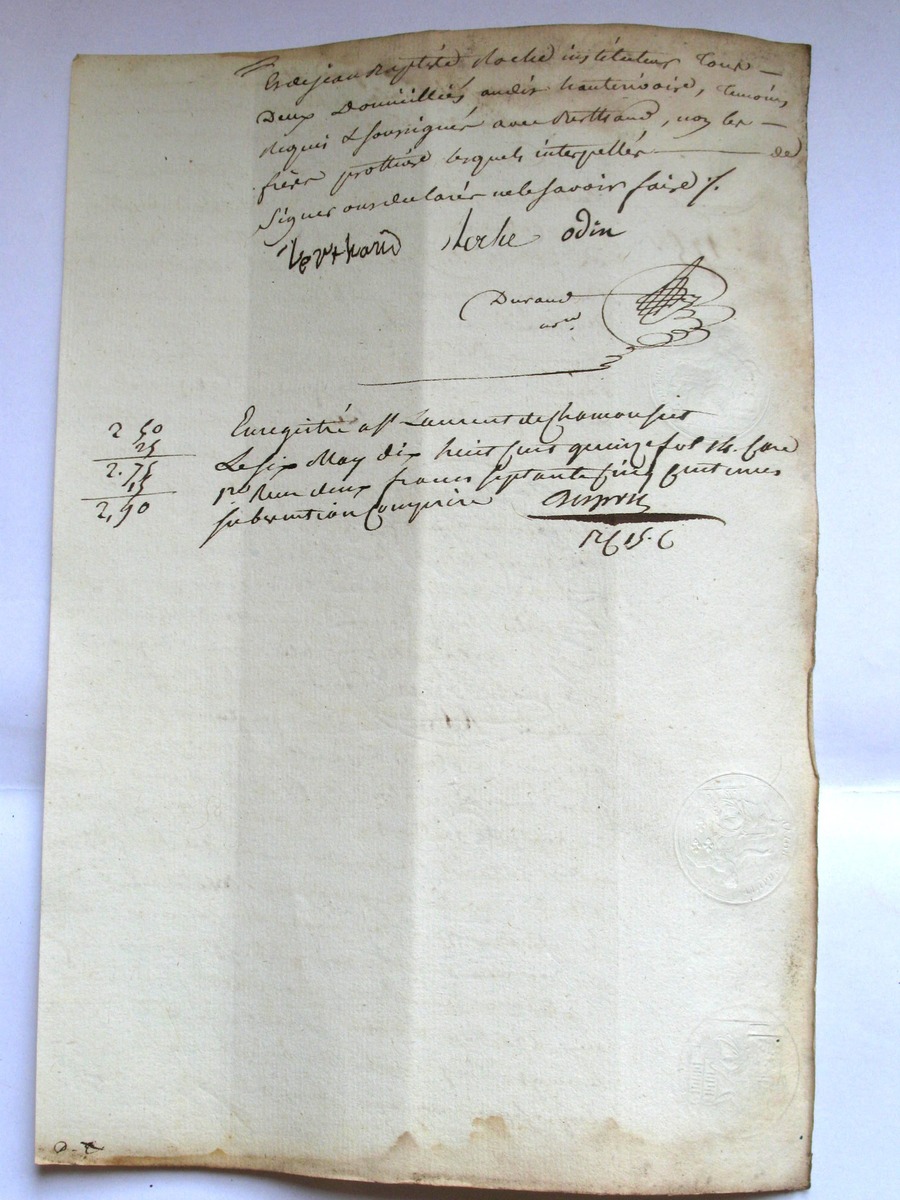 Et de jean Baptiste Roche instituteur tous
deux domiciliés audit hauterivoire, témoins
Requis & soussignés avec Berthaud, non les
frères prothière lesquels interpellés de
signer ont déclarés ne le savoir faire ⁒
Berthaud Roche odin
Durand
nore
Enregistré a St Laurent de Chamousset
2 50
Le six May dix huit cent quinze fol 14. Case
25
2.75
1re Reçu deux francs septante cinq centimes
15
2,90
subvention comprise